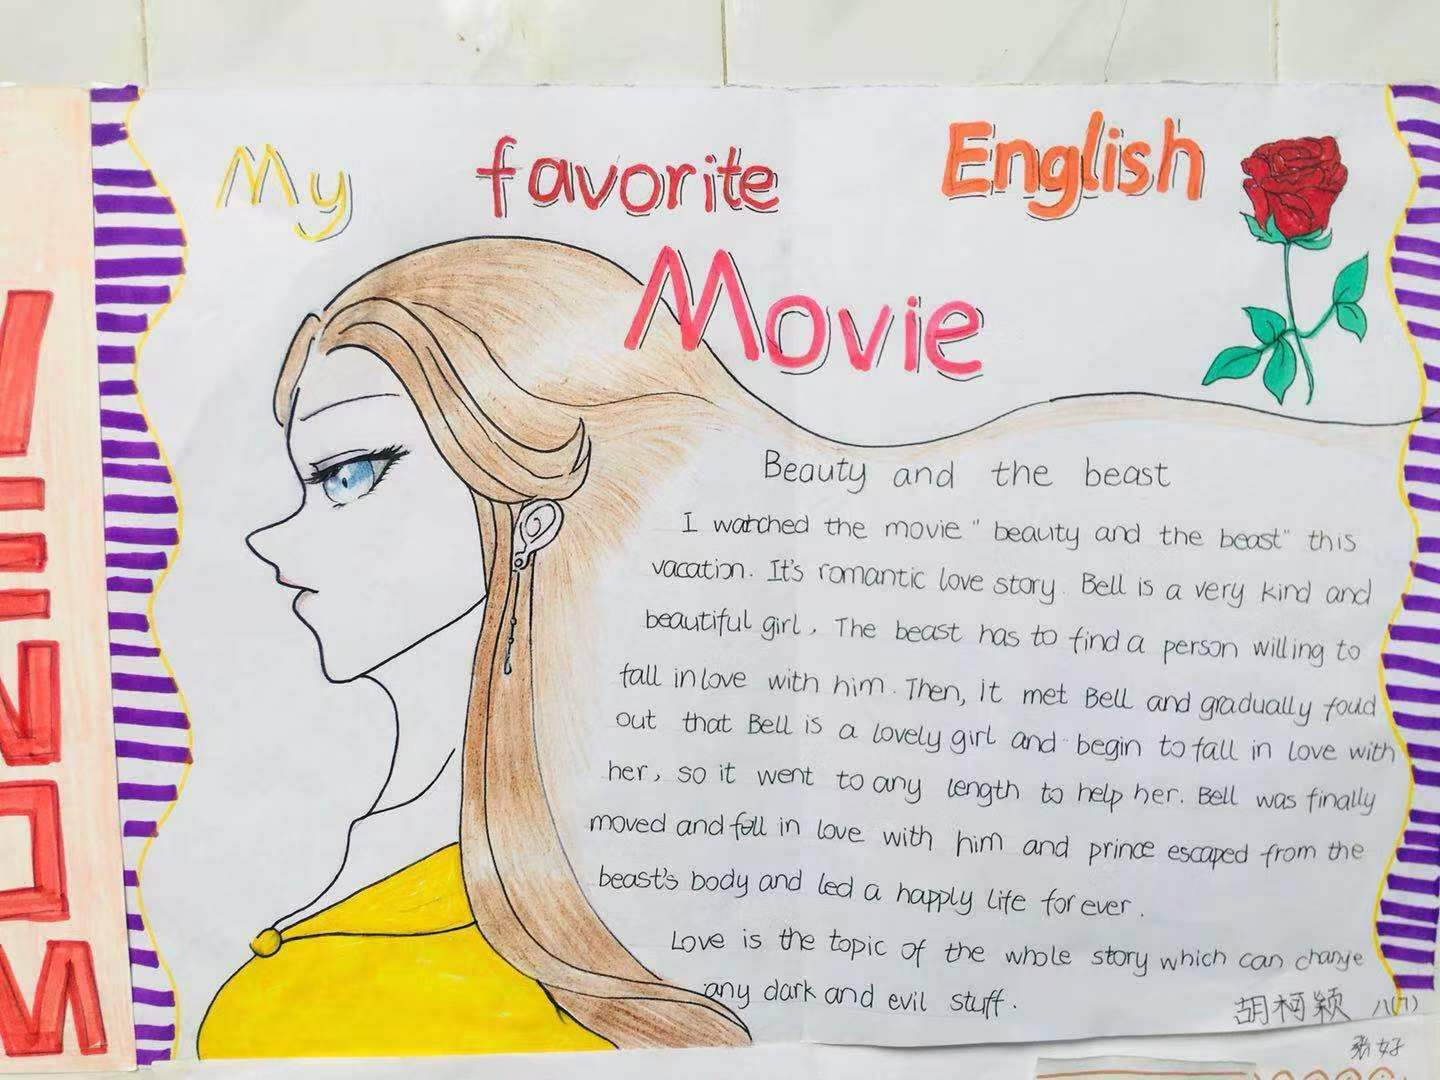 My favorite English
Movie
Beauty and the beast
I watched the movie "beauty and the beast" this
vacation. It's romantic love story. Bell is a very kind and
beautiful girl, The beast has to find a person willing to
fall in love with him. Then, it met Bell and gradually foud
out that Bell is a lovely girl and begin to fall in love with
her, so it went to any length to help her. Bell was finally
moved and fell in love with him and prince escaped from the
beast's body and led a happly life for ever.
Love is the topic of the whole story which can change
any dark and evil stuff.
胡柯颖 八(7)
张好
VENOM